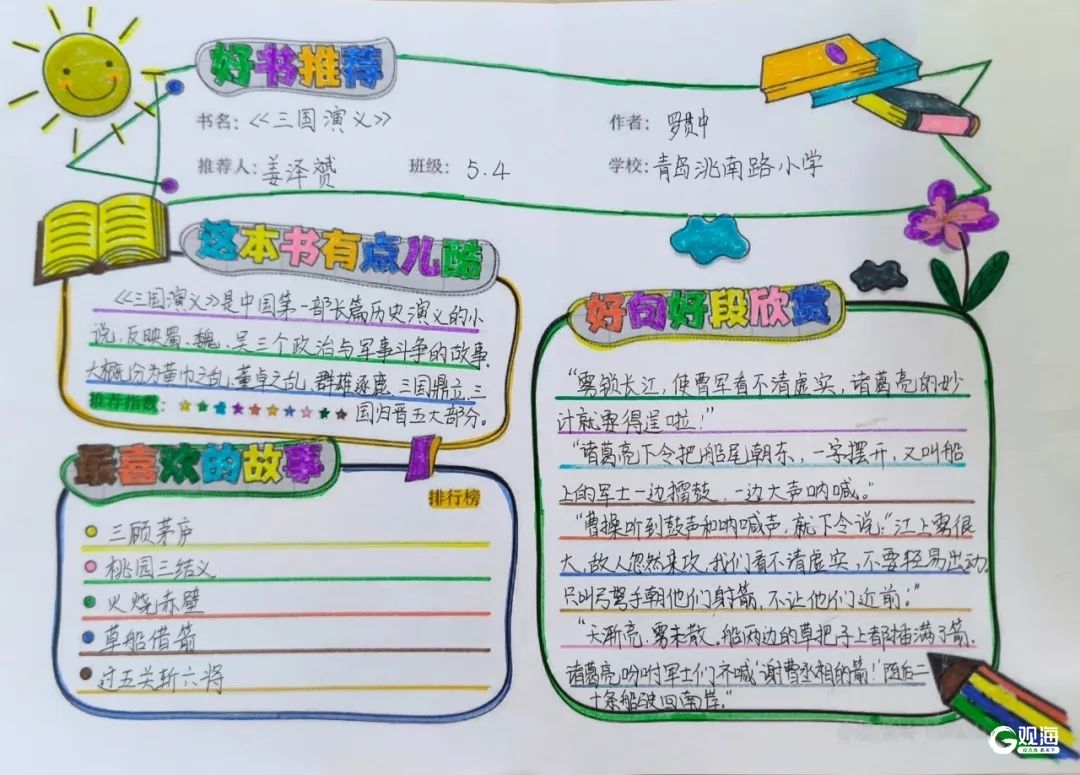 好书推荐
书名：《三国演义》
作者：罗贯中
推荐人：姜泽赟
班级：5.4
学校：青岛洮南路小学
这本书有点儿酷
《三国演义》是中国第一部长篇历史演义的小
说，反映蜀、魏、吴三个政治与军事斗争的故事.
大概分为黄巾之乱，董卓之乱，群雄逐鹿，三国鼎立，三
推荐指数：
国归晋五大部分。
最喜欢的故事
排行榜
三顾茅庐
桃园三结义
火烧赤壁
草船借箭
过五关斩六将
好句好段欣赏
“雾锁长江，使曹军看不清虚实，诸葛亮的妙
计就要得逞啦！”
“诸葛亮下令把船尾朝东，一字摆开，又叫船
上的军士一边擂鼓，一边大声呐喊。”
“曹操听到鼓声和呐喊声，就下令说：“江上雾很
大，敌人忽然来攻，我们看不清虚实，不要轻易出动。
只叫弓弩手朝他们射箭，不让他们近前。”
“天渐亮，雾未散。船两边的草把子上都插满了箭.
诸葛亮吩咐军士们齐喊‘谢曹丞相的箭！’随后二
十条船驶回南岸。”
观海